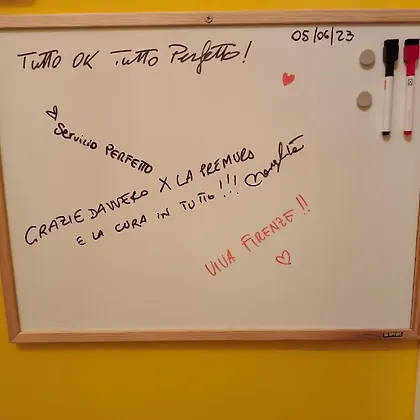 05/06/23
TUTTO OK TUTTO PERFETTO!
SERVICIO PERFETTO
GRAZIE DAVVERO X LA PREMURA
E LA CURA IN TUTTO!!!
VIVA FIRENZE!!